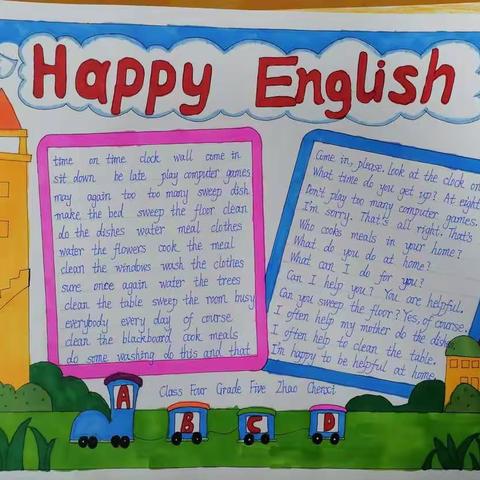 Happy English
time on time clock wall come in
sit down be late play computer games
may again too too many sweep dish
make the bed sweep the floor clean
do the dishes water meal clothes
water the flowers cook the meal
clean the windows wash the clothes
sure once again water the trees
clean the table sweep the room busy
everybody every day of course
clean the blackboard cook meals
do some washing do this and that
Come in, please. Look at the clock on
What time do you get up? At eight
Don't play too many computer games.
I'm sorry. That's all right. That's
Who cooks meals in your home?
What do you do at home?
What can I do for you?
Can I help you? You are helpful.
Can you sweep the floor? Yes, of course.
I often help my mother do the dishes.
I often help to clean the table.
I'm happy to be helpful at home
Class Four Grade Five Zhao Chenxi
A B C D